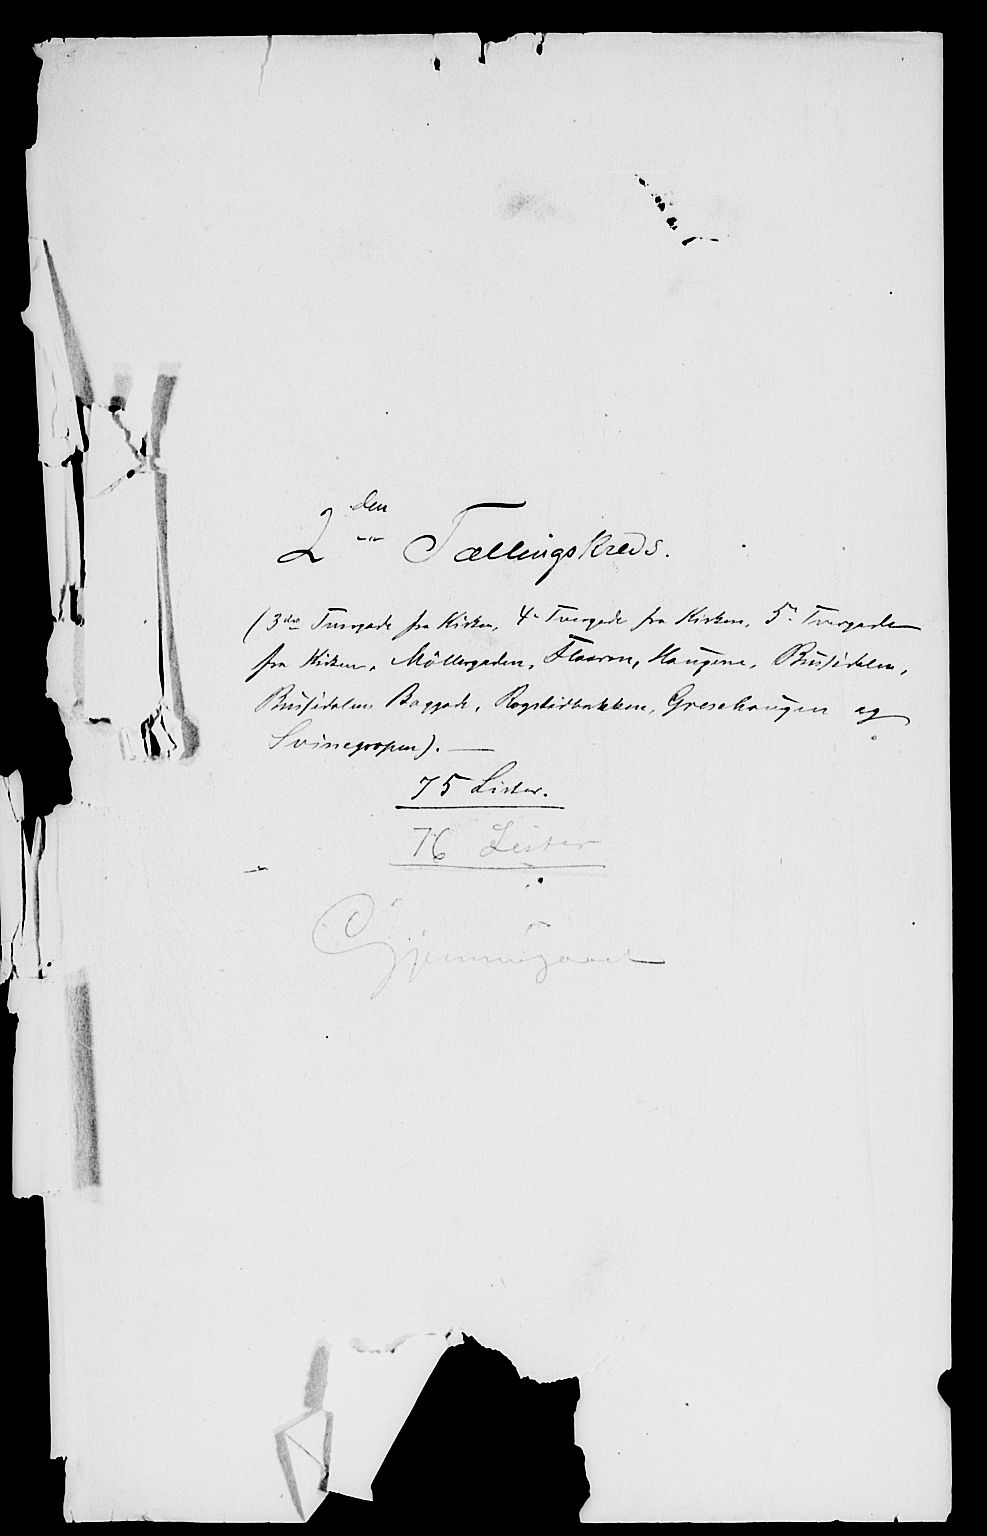 2den Tællingskreds.
(3die Tvergade fra Kirken, 4e Tvergade fra Kirken, 5e Tvergade
fra Kirken, Möllergaden, Flaaren, Haugene, Bussedalen,
Bussedalens Baggade, Rogstadbakken, Gresehaugen og
Svinegropen). —
75 Lister.
76 Lister